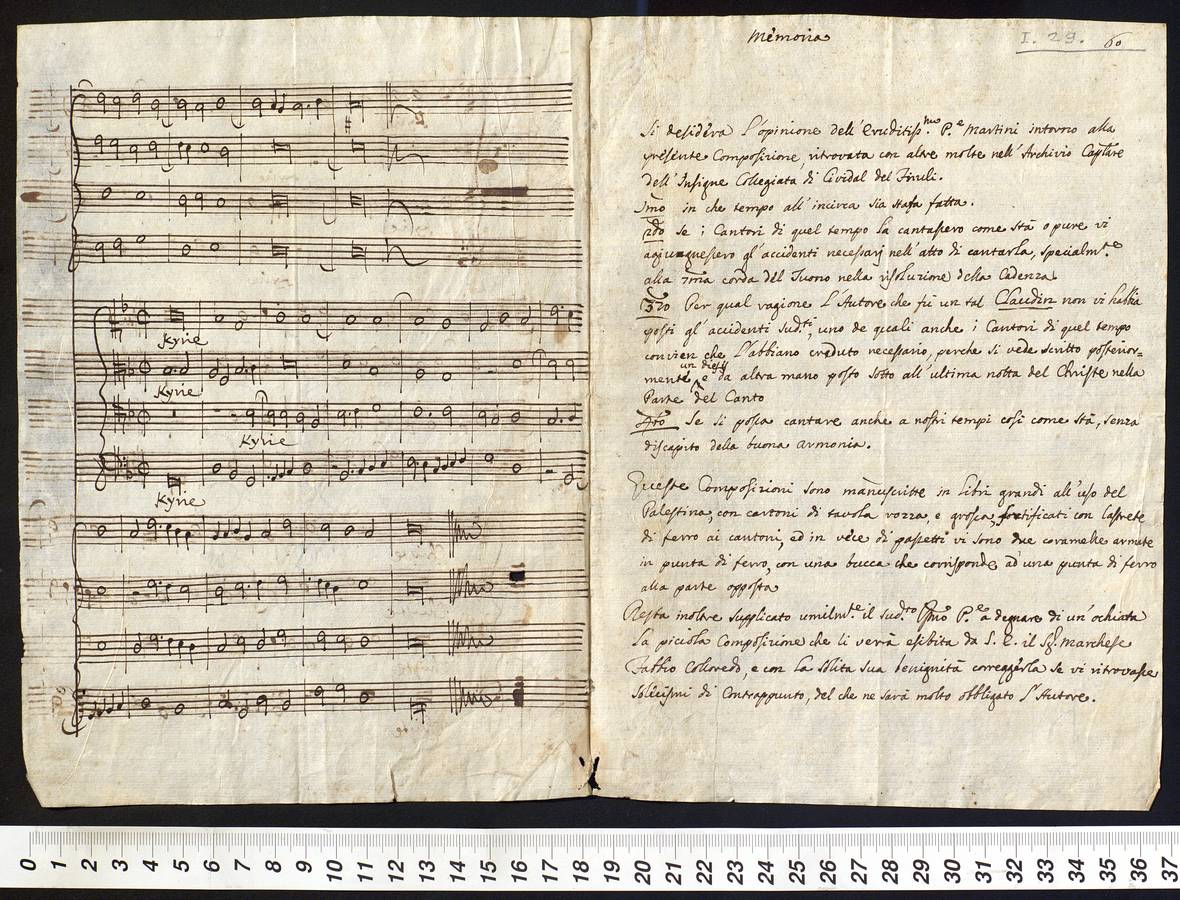 Kyrie
Kyrie
Kyrie
Kyrie
Memoria
I. 29. 60
Si desidera l'opinione dell'eruditiss.mo P.e Martini intorno alla
presente Composizione, ritrovata con altre molte nell'Archivio Caplare
dell'Insigne Collegiata di Cividal del Friuli.
Imo in che tempo all'incirca sia stata fatta.
2do se i Cantori di quel tempo la cantassero come stà o pure vi
aggiungessero gl'accidenti necessarj nell'atto di cantarla, specialm.te
alla 7ma corda del Tuono nella risoluzione della Cadenza
3zo Per qual ragione l'Autore che fù un tal Claudin non vi habbia
posti gl'accidenti sud.ti, uno de quali anche i Cantori di quel tempo
convien che l'abbiano creduto necessario, perche si vede scritto posterior=
mente, e da altra mano posto sotto all'ultima notta del Christe nella
un diesis
Parte del Canto
4to Se si possa cantare anche a nostri tempi così come stà, senza
discapito della buona armonia.
Queste Composizioni sono manuscritte in libri grandi all'uso del
Palestina, con cartoni di tavola rozza, e grossa, fortificati con lastrete
di ferro ai cantoni, ed in vece di passetti vi sono due coramelle armate
in punta di ferro, con una bucca che corrisponde ad una punta di ferro
alla parte opposta
Resta inoltre supplicato umilm.te il sud.to P.e a degnare di un'ochiata
la piciola Composizione che li verà esibita da S. E. il Sg.r Marchese
Fabbio Colloredo, e con la solita sua benignità correggerla se vi ritrovasse
Solecismi di Contrappunto, del che ne sarà molto obbligato l'Autore.
0 1 2 3 4 5 6 7 8 9 10 11 12 13 14 15 16 17 18 19 20 21 22 23 24 25 26 27 28 29 30 31 32 33 34 35 36 37